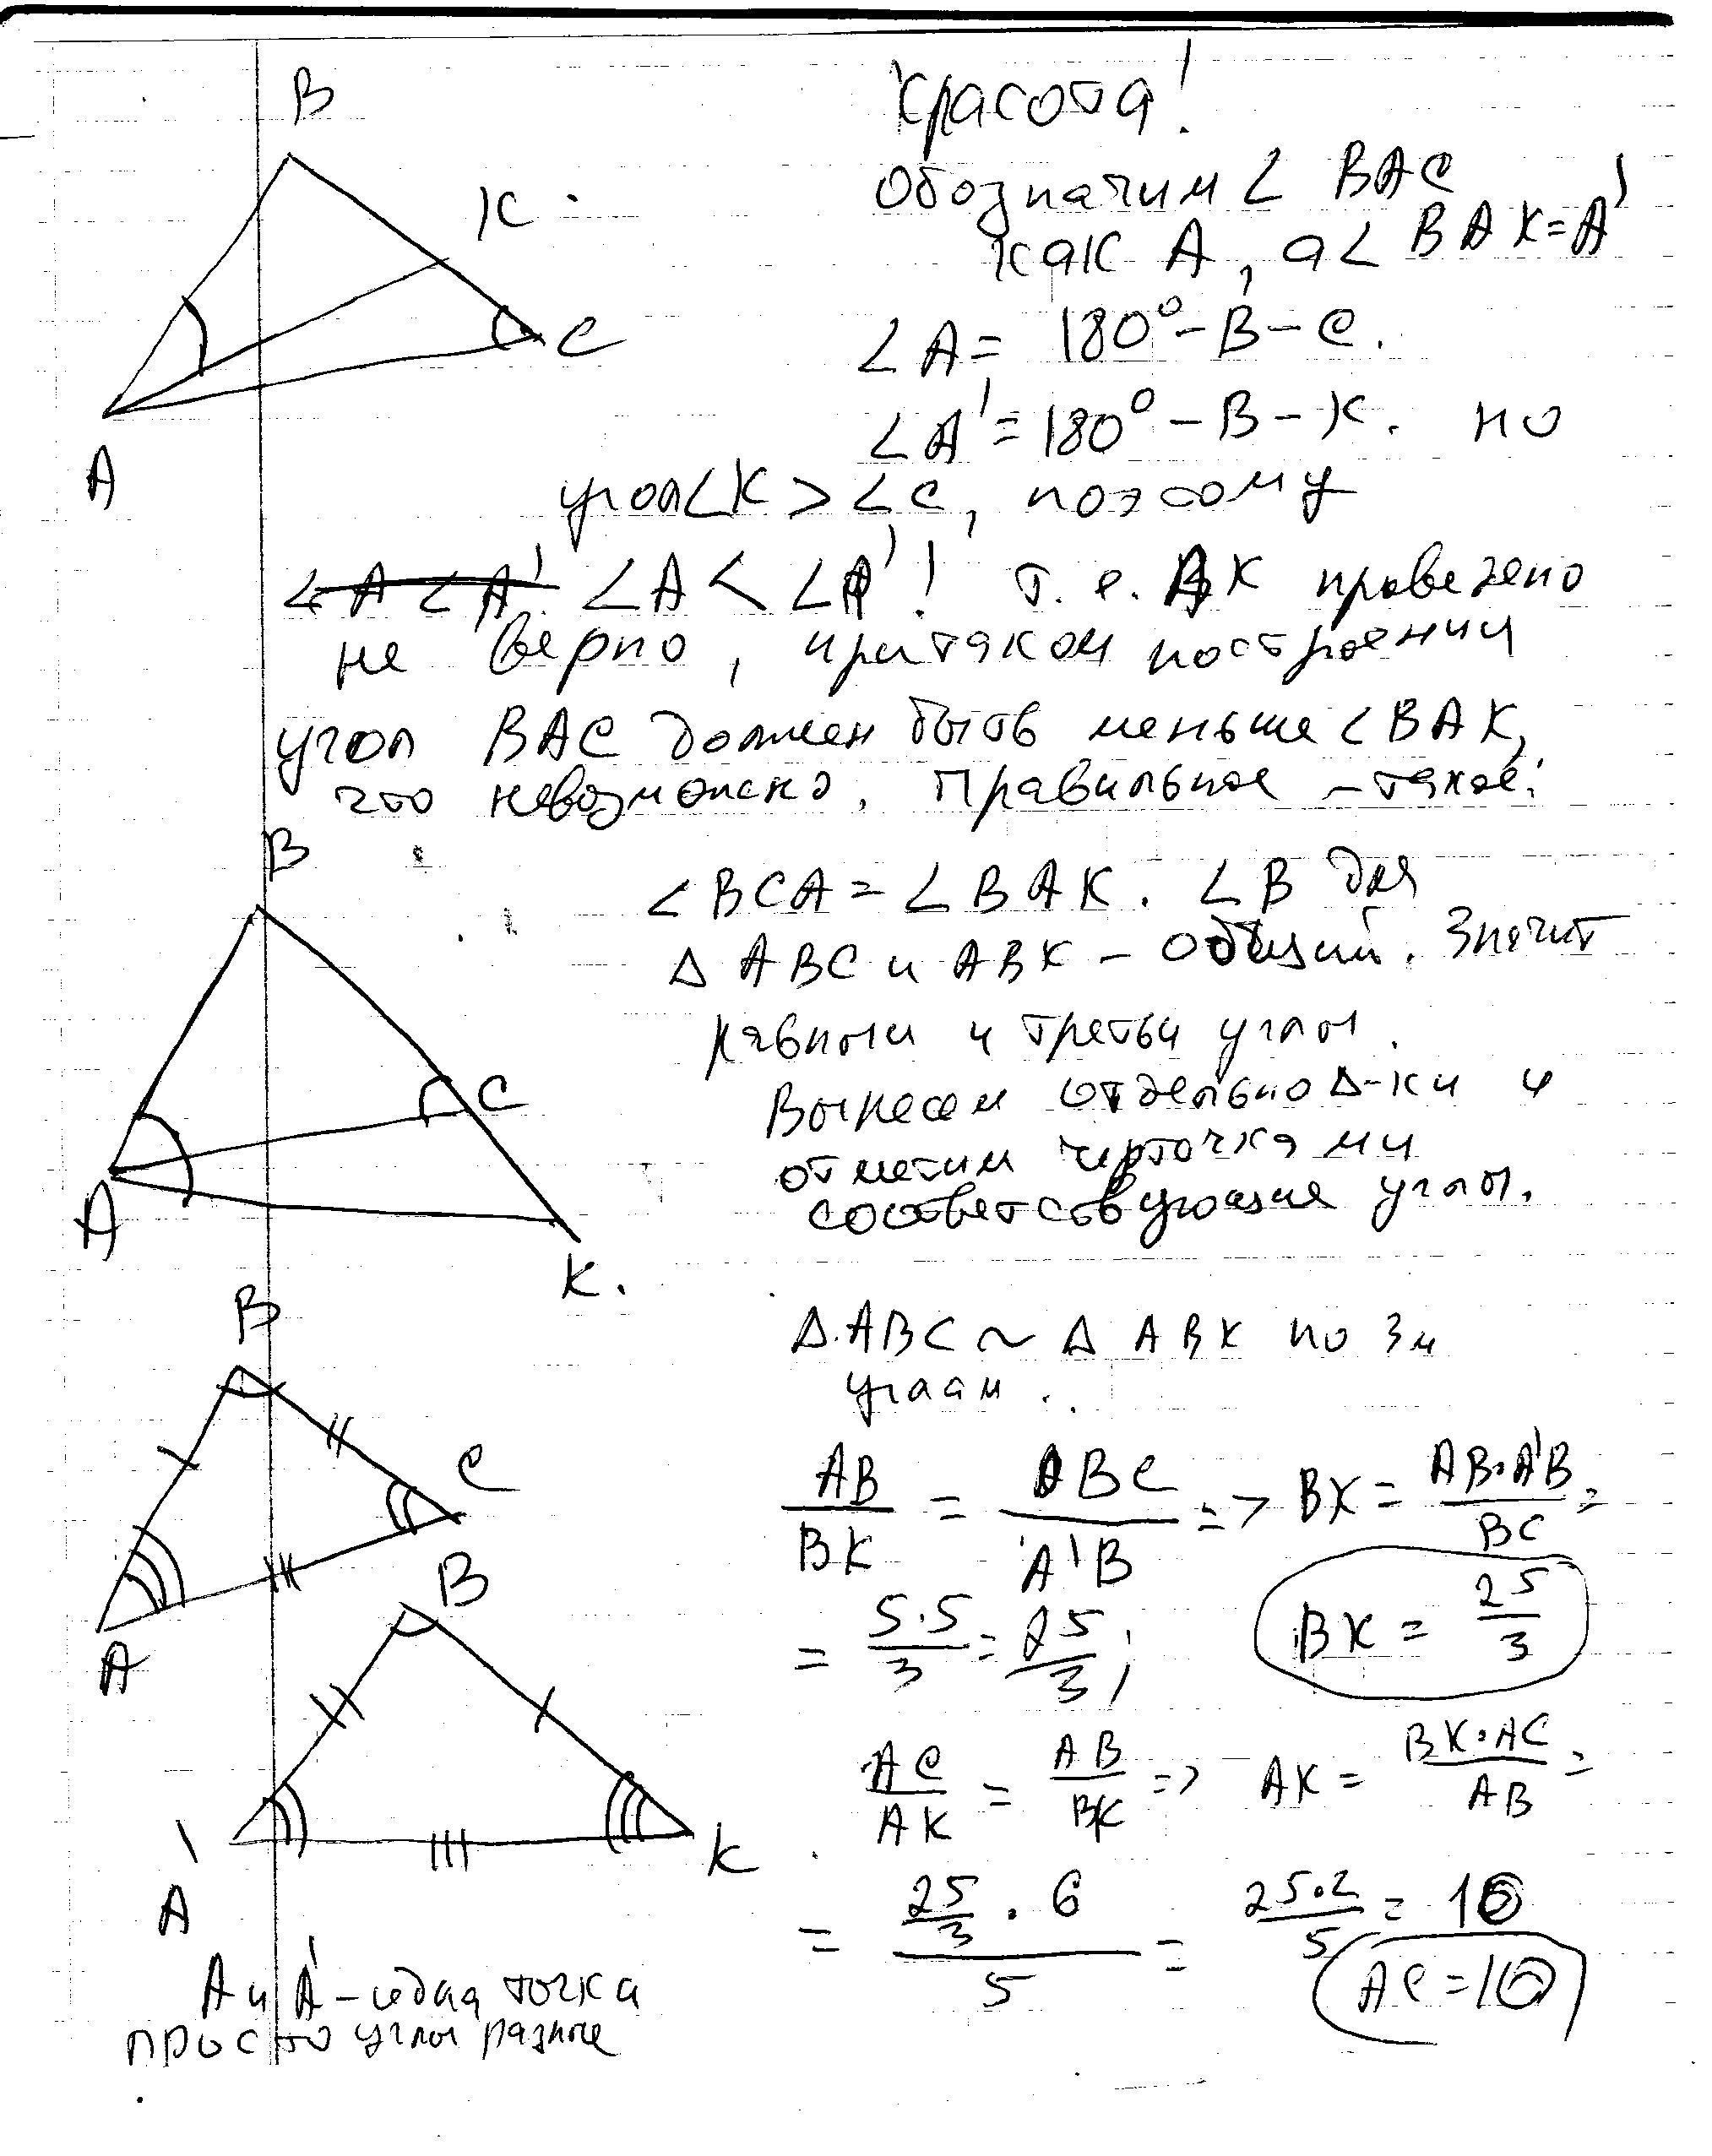 Красота!
B
Обозначим ∠ BAC
K
как A, а ∠ BAK = A'
C
∠A = 180° - B - C.
∠A' = 180° - B - K. но
A
угол ∠K > ∠C, поэтому
∠A < ∠A' ∠A < ∠A'! т.е. AK проведено
не верно, при таком построении
угол BAC должен быть меньше ∠ BAK,
что невозможно. Правильное - такое:
B
∠ BCA = ∠ BAK. ∠ B для
Δ ABC и ABK - общий. Значит
равны и третьи углы.
C
Вынесем отдельно Δ-ки и
отметим черточками
соответствующие углы.
A
K.
B
Δ ABC ~ Δ ABK по 3м
углам.
C
AB/BK = BC/A'B => BK = AB·A'B/BC =
B
= 5·5/3 = 25/3; BK = 25/3
A
AC/AK = AB/BK => AK = BK·AC/AB =
K
A'
= 25/3 · 6 / 5 = 25·2/5 = 10
A и A' - одна точка
AC = 10
просто углы разные